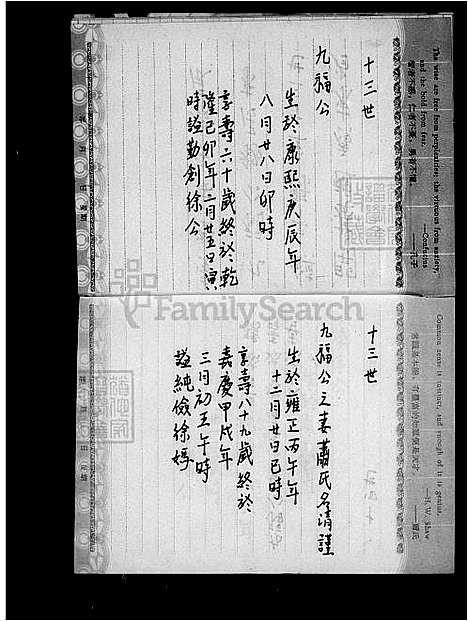 The wise are free from perplexities; the virtuous from anxiety,
and the bold from fear.
—Confucius
智者不惑，仁者不憂，勇者不懼。
——孔子
十三世
九福公
生於康熙庚辰年
八月廿八日卯時
享壽六十歲終於乾
隆己卯年二月廿五日寅
時諡勤創徐公
FamilySearch
Common sense is instinct, and enough of it is genius.
—H. W. Shaw
——蕭氏
十三世
九福公之妻蕭氏名清謹
生於雍正丙午年
十二月廿日巳時
享壽八十九歲終於
嘉慶甲戌年
三月初五午時
諡純儉徐婷